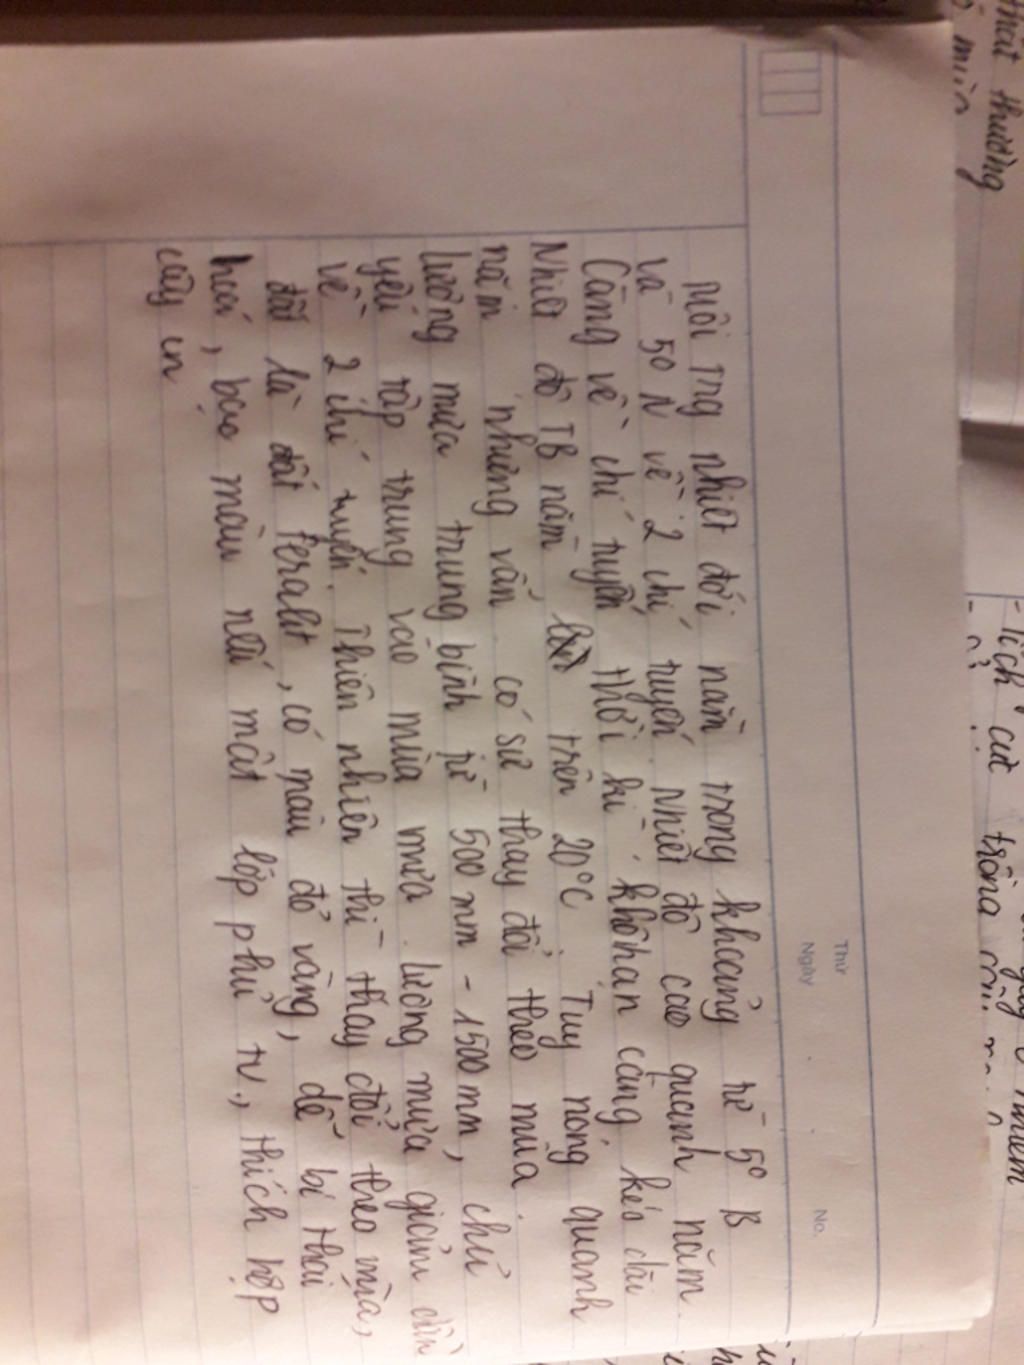 Thứ
Ngày
No.
Môi trg nhiệt đới nằm trong khoảng từ 5° B
và 5° N về 2 chí tuyến. Nhiệt độ cao quanh năm.
Càng về chí tuyến thời kì khô hạn càng kéo dài
Nhiệt độ TB năm trên 20°C. Tuy nóng quanh
năm nhưng vẫn có sự thay đổi theo mùa.
Lượng mưa trung bình từ 500 mm - 1500 mm, chủ
yếu tập trung vào mùa mưa. Lượng mưa giảm dần
về 2 chí tuyến. Thiên nhiên thì thay đổi theo mùa,
đất là đất feralit, có màu đỏ vàng, dễ bị thoái
hoá, bạc màu nếu mất lớp phủ tv., thích hợp
cây cn
thất thường
- Tích cực trồng cây